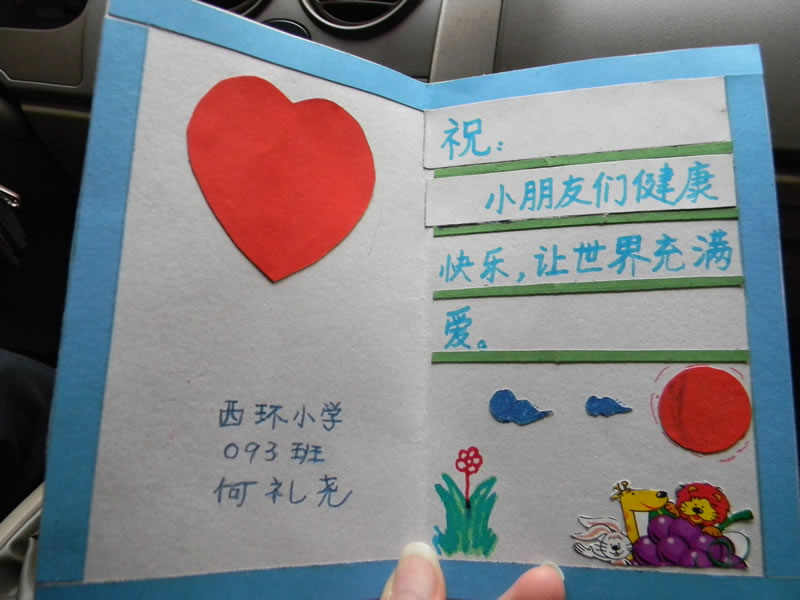 西环小学
093班
何礼尧
祝：
小朋友们健康
快乐，让世界充满
爱。